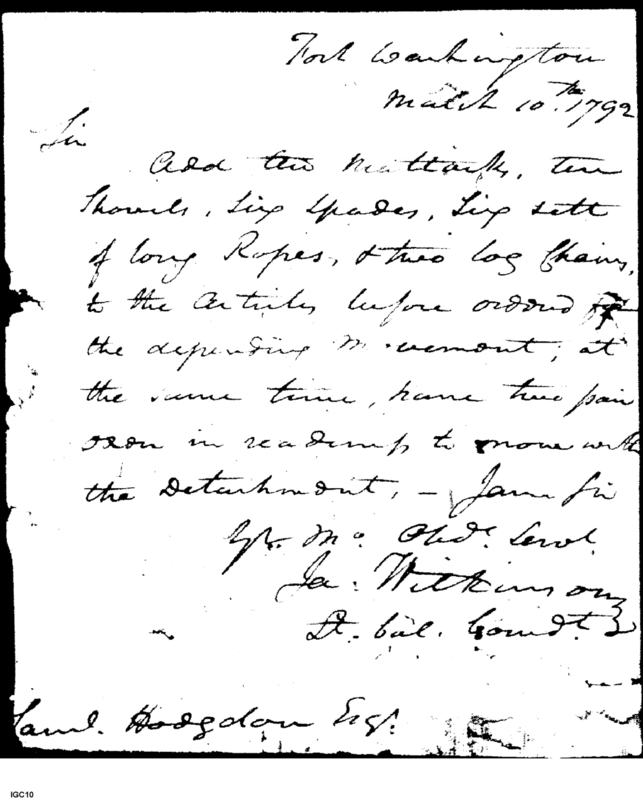 Fort Washington
March 10th. 1792
Sir
Add two Mattocks, ten
Shovels, Six Spades, Six sett
of long Ropes, & two log Chains,
to the Articles before ordered for
the depending Movement; at
the same time, have two pair
oxen in readiness to move with
the Detachment. – I am Sir
Yr. Mo. Obedt. Servt.
Ja. Wilkinson
Lt. Col. Comdt.
Saml. Hodgdon Esqr.
IGC10